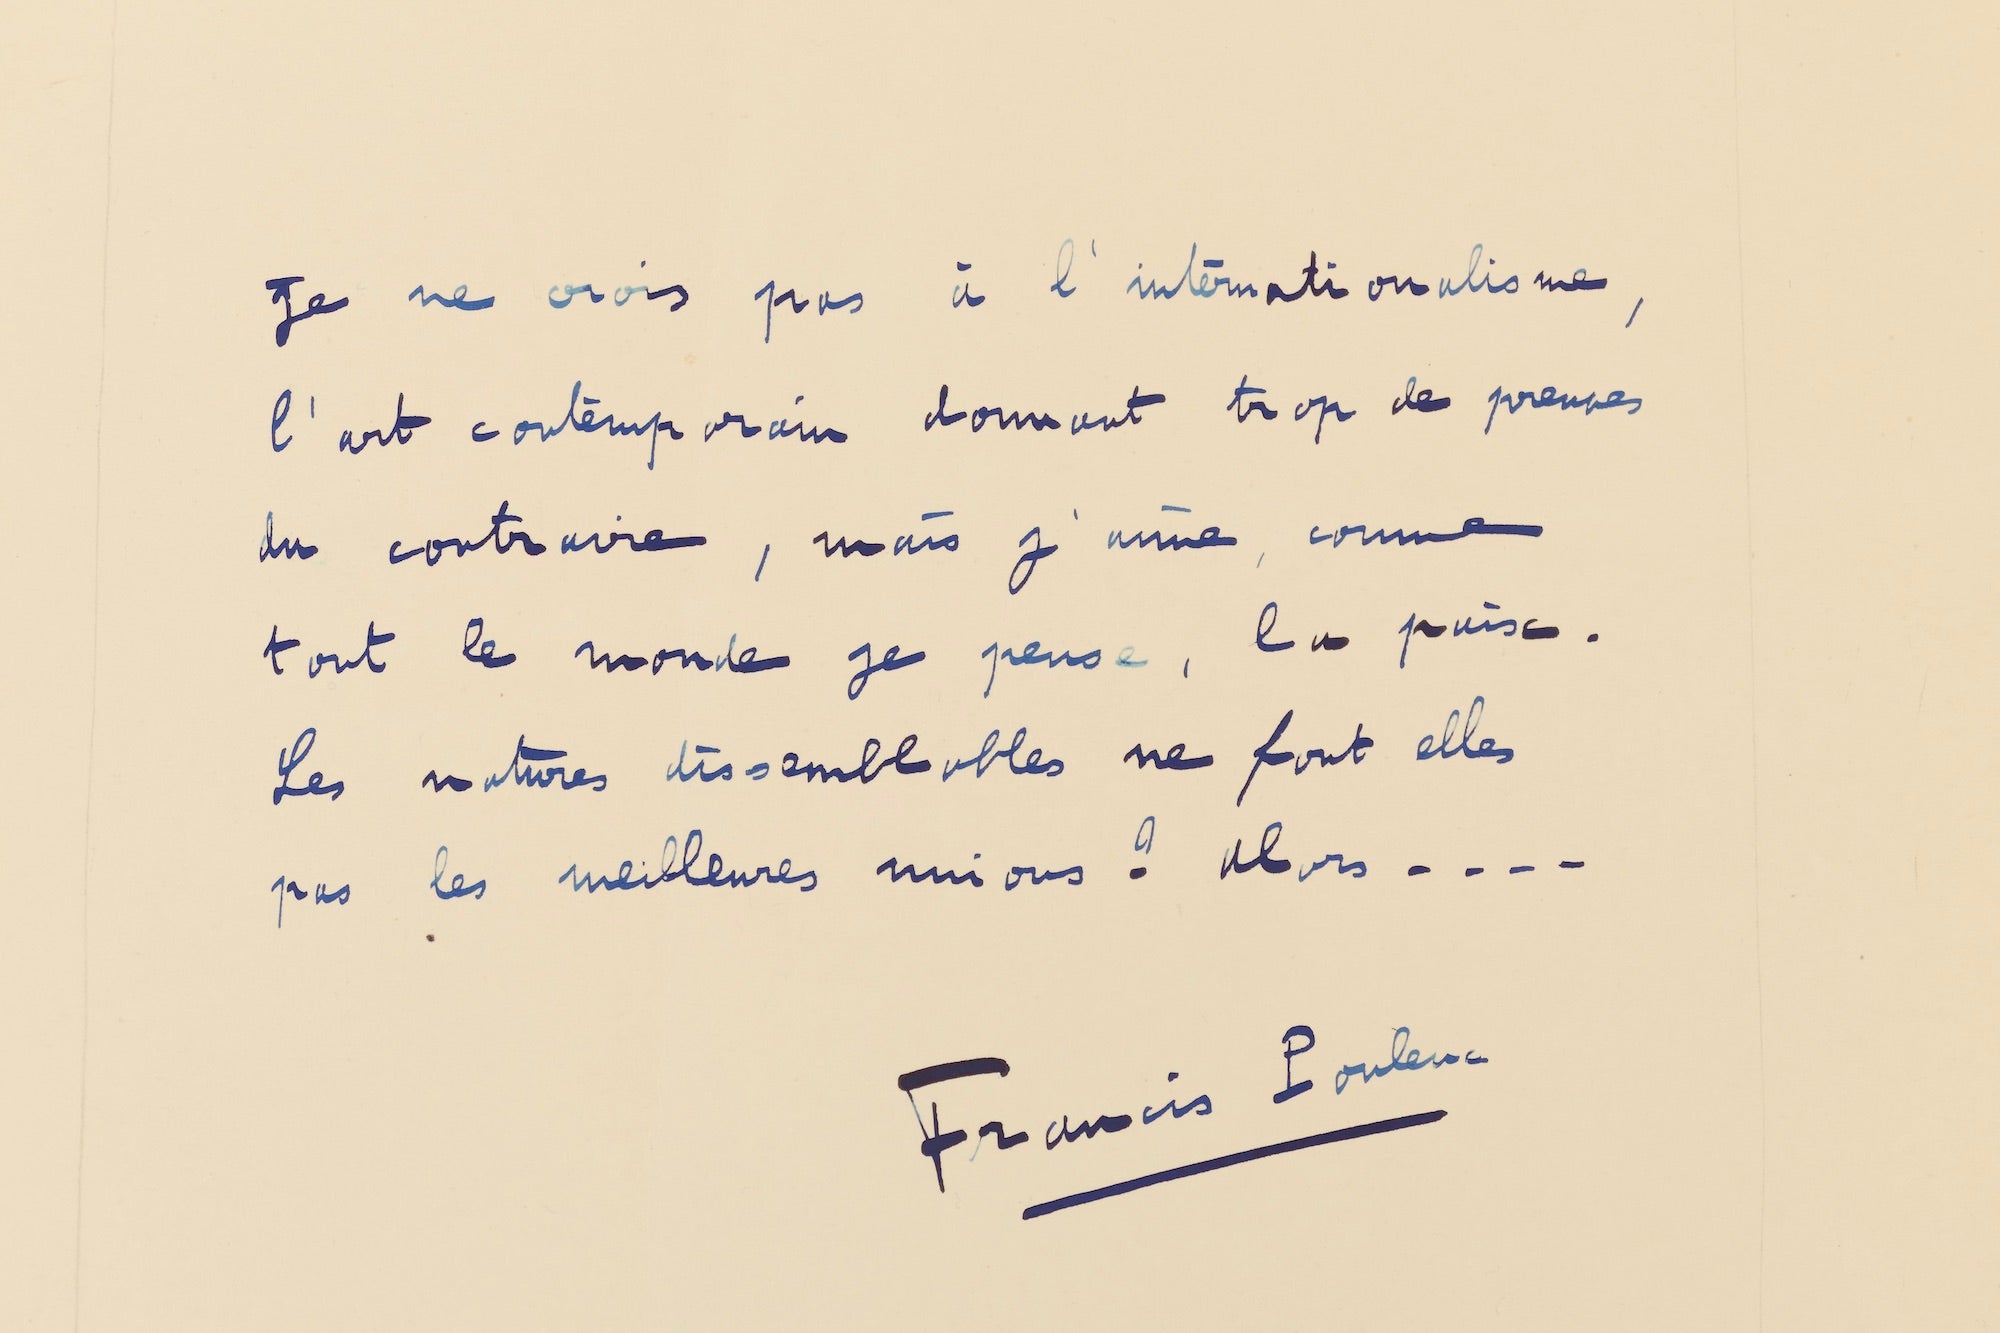 Je ne crois pas à l'internationalisme,
l'art contemporain donnant trop de preuves
du contraire, mais j'aime, comme
tout le monde je pense, la paix.
Les natures dissemblables ne font elles
pas les meilleures unions? Alors ----
Francis Poulenc